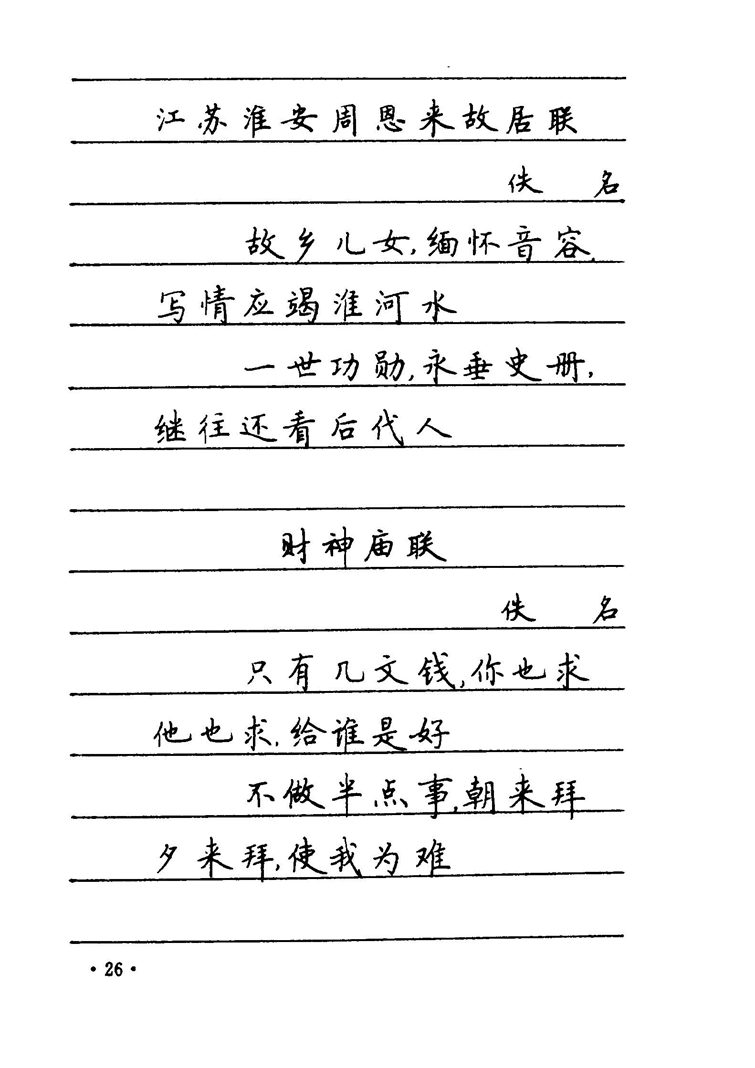 江苏淮安周恩来故居联
佚 名
故乡儿女,缅怀音容,
写情应竭淮河水
一世功勋,永垂史册,
继往还看后代人
财神庙联
佚 名
只有几文钱,你也求
他也求,给谁是好
不做半点事,朝来拜
夕来拜,使我为难
·26·